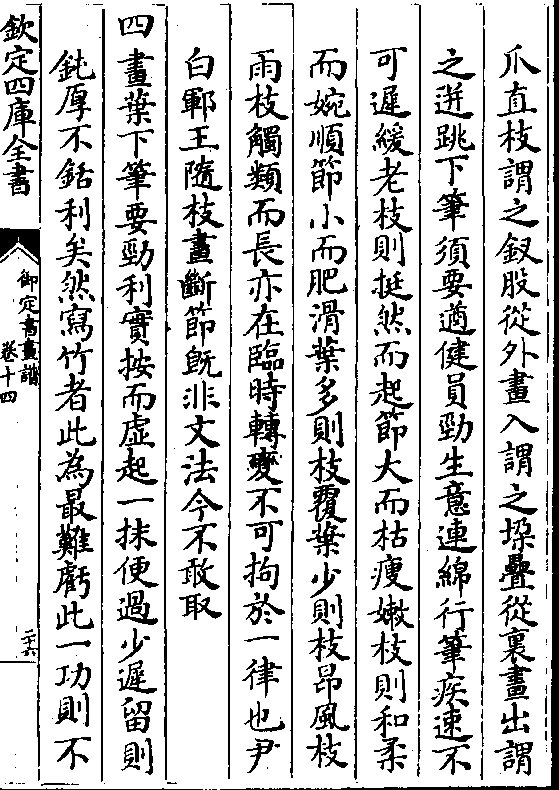 爪直枝謂之釵股從外畫入謂之垜疊從裏畫出謂
之迸跳下筆須要遒健員勁生意連綿行筆疾速不
可遲緩老枝則挺然而起節大而枯瘦嫩枝則和柔
而婉順節小而肥滑葉多則枝覆葉少則枝昂風枝
雨枝觸類而長亦在臨時轉變不可拘於一律也尹
白鄆王隨枝畫斷節旣非文法今不敢取
四畫葉下筆要勁利實按而虛起一抹便過少遲留則
鈍厚不銛利矣然寫竹者此為最難虧此一功則不
欽定四庫全書
御定書畫譜
卷十四
二十六